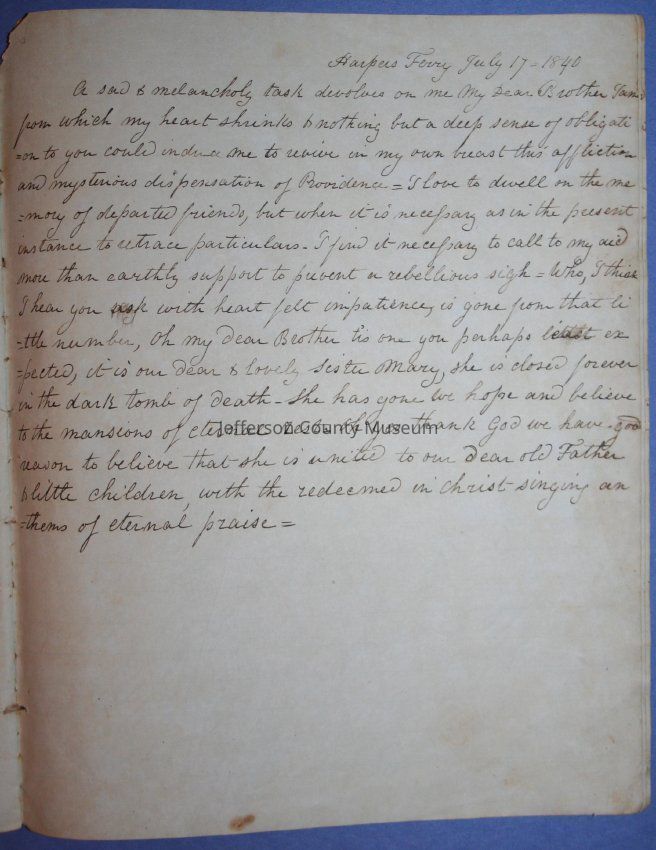 Harpers Ferry July 17 = 1840
A sad & melancholy task devolves on me My Dear Brother
from which my heart shrinks & nothing but a deep sense of obligati
=on to you could induce me to revive in my own breast this affliction
and mysterious dispensation of Providence = I love to dwell on the me
=mory of departed friends, but when it is necessary as in the present
instance to retrace particulars - I find it necessary to call to my aid
more than earthly support to prevent a rebellious sigh = Who, I think
I hear you ask with heart felt impatience, is gone from that li
=ttle number, Oh my dear Brother tis one you perhaps least ex
=pected, it is our dear & lovely Sister Mary, she is closed forever
in the dark tomb of death - She has gone we hope and believe
to the mansions of eternal thank God we have good
reason to believe that she is united to our dear old Father
& little children, with the redeemed in Christ singing an
=thems of eternal praise =
Jefferson County Museum